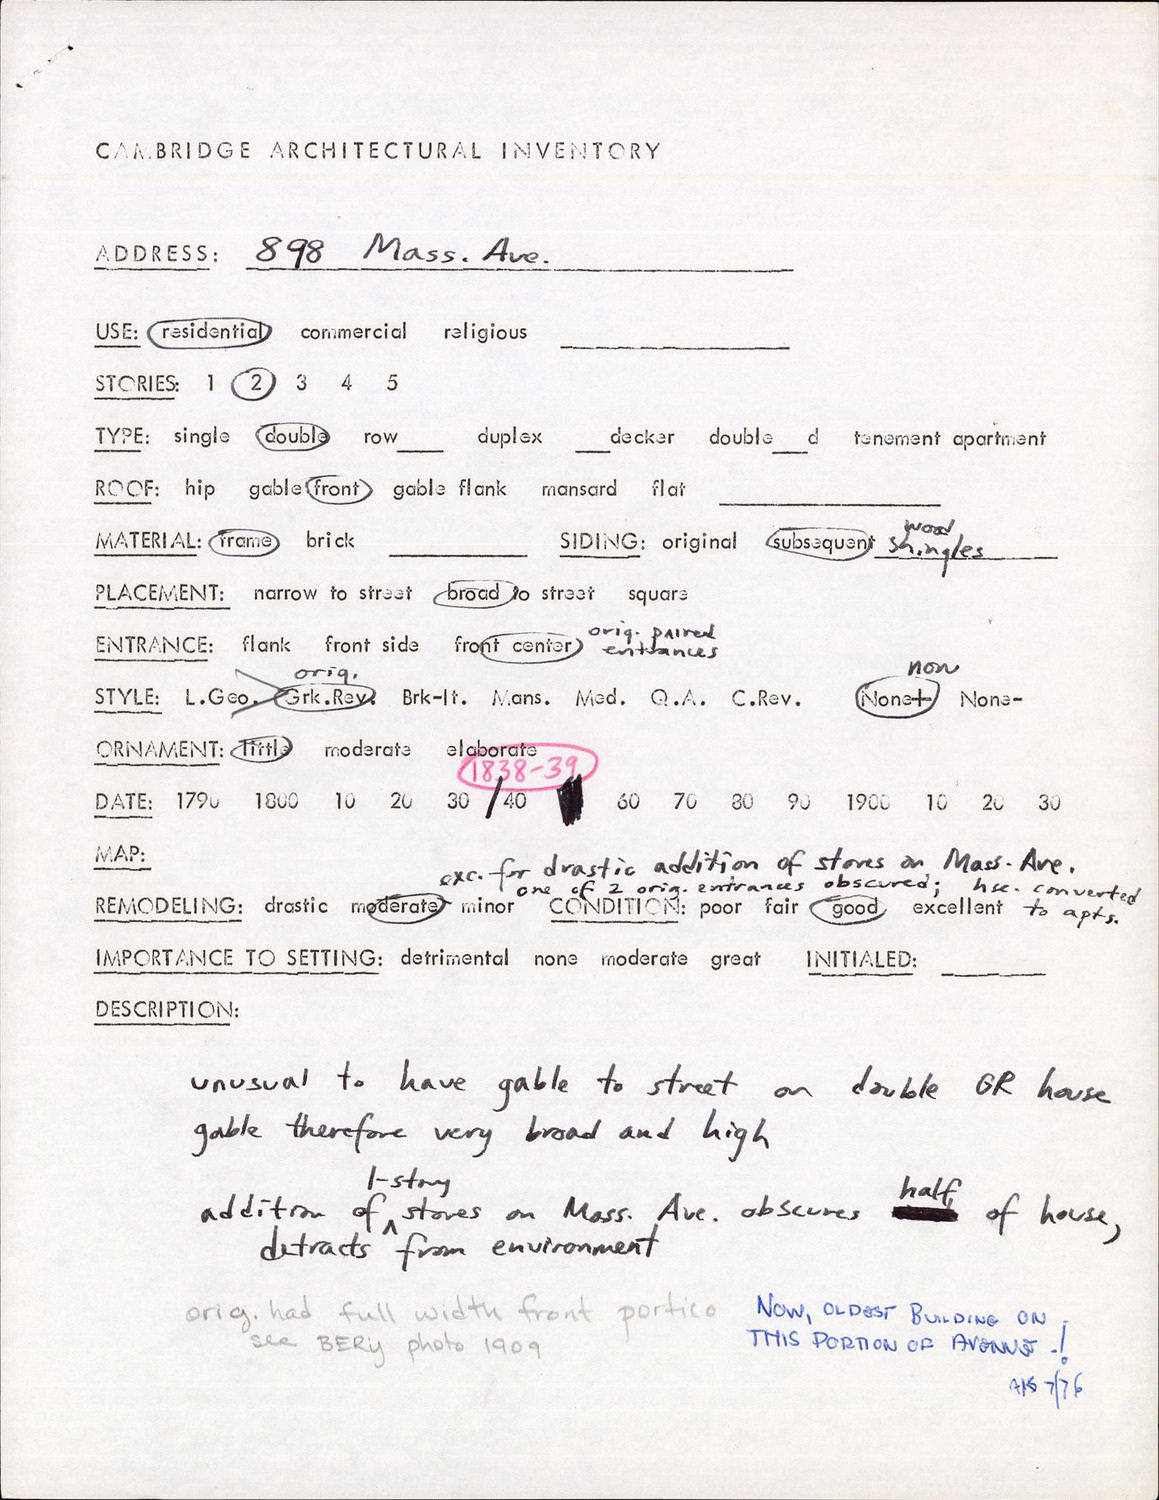 CAMBRIDGE ARCHITECTURAL INVENTORY
ADDRESS: 898 Mass. Ave.
USE: residential commercial religious
STORIES: 1 2 3 4 5
TYPE: single double row___ duplex ___decker double___d tenement apartment
ROOF: hip gable front gable flank mansard flat
MATERIAL: frame brick SIDING: original subsequent wood shingles
PLACEMENT: narrow to street broad to street square
ENTRANCE: flank front side front center orig. paired entrances
orig. now
STYLE: L.Geo. Grk.Rev. Brk-It. Mans. Med. Q.A. C.Rev. None+ None-
ORNAMENT: little moderate elaborate
1838-39
DATE: 1790 1800 10 20 30 / 40 60 70 80 90 1900 10 20 30
MAP:
exc. for drastic addition of stores on Mass. Ave.
one of 2 orig. entrances obscured; hse. converted
to apts.
REMODELING: drastic moderate minor CONDITION: poor fair good excellent
IMPORTANCE TO SETTING: detrimental none moderate great INITIALED:
DESCRIPTION:
unusual to have gable to street on double GR house
gable therefore very broad and high
addition of 1-story stores on Mass. Ave. obscures half of house,
detracts from environment
orig. had full width front portico
see BERy photo 1909
NOW, OLDEST BUILDING ON
THIS PORTION OF AVENUE!
7/76